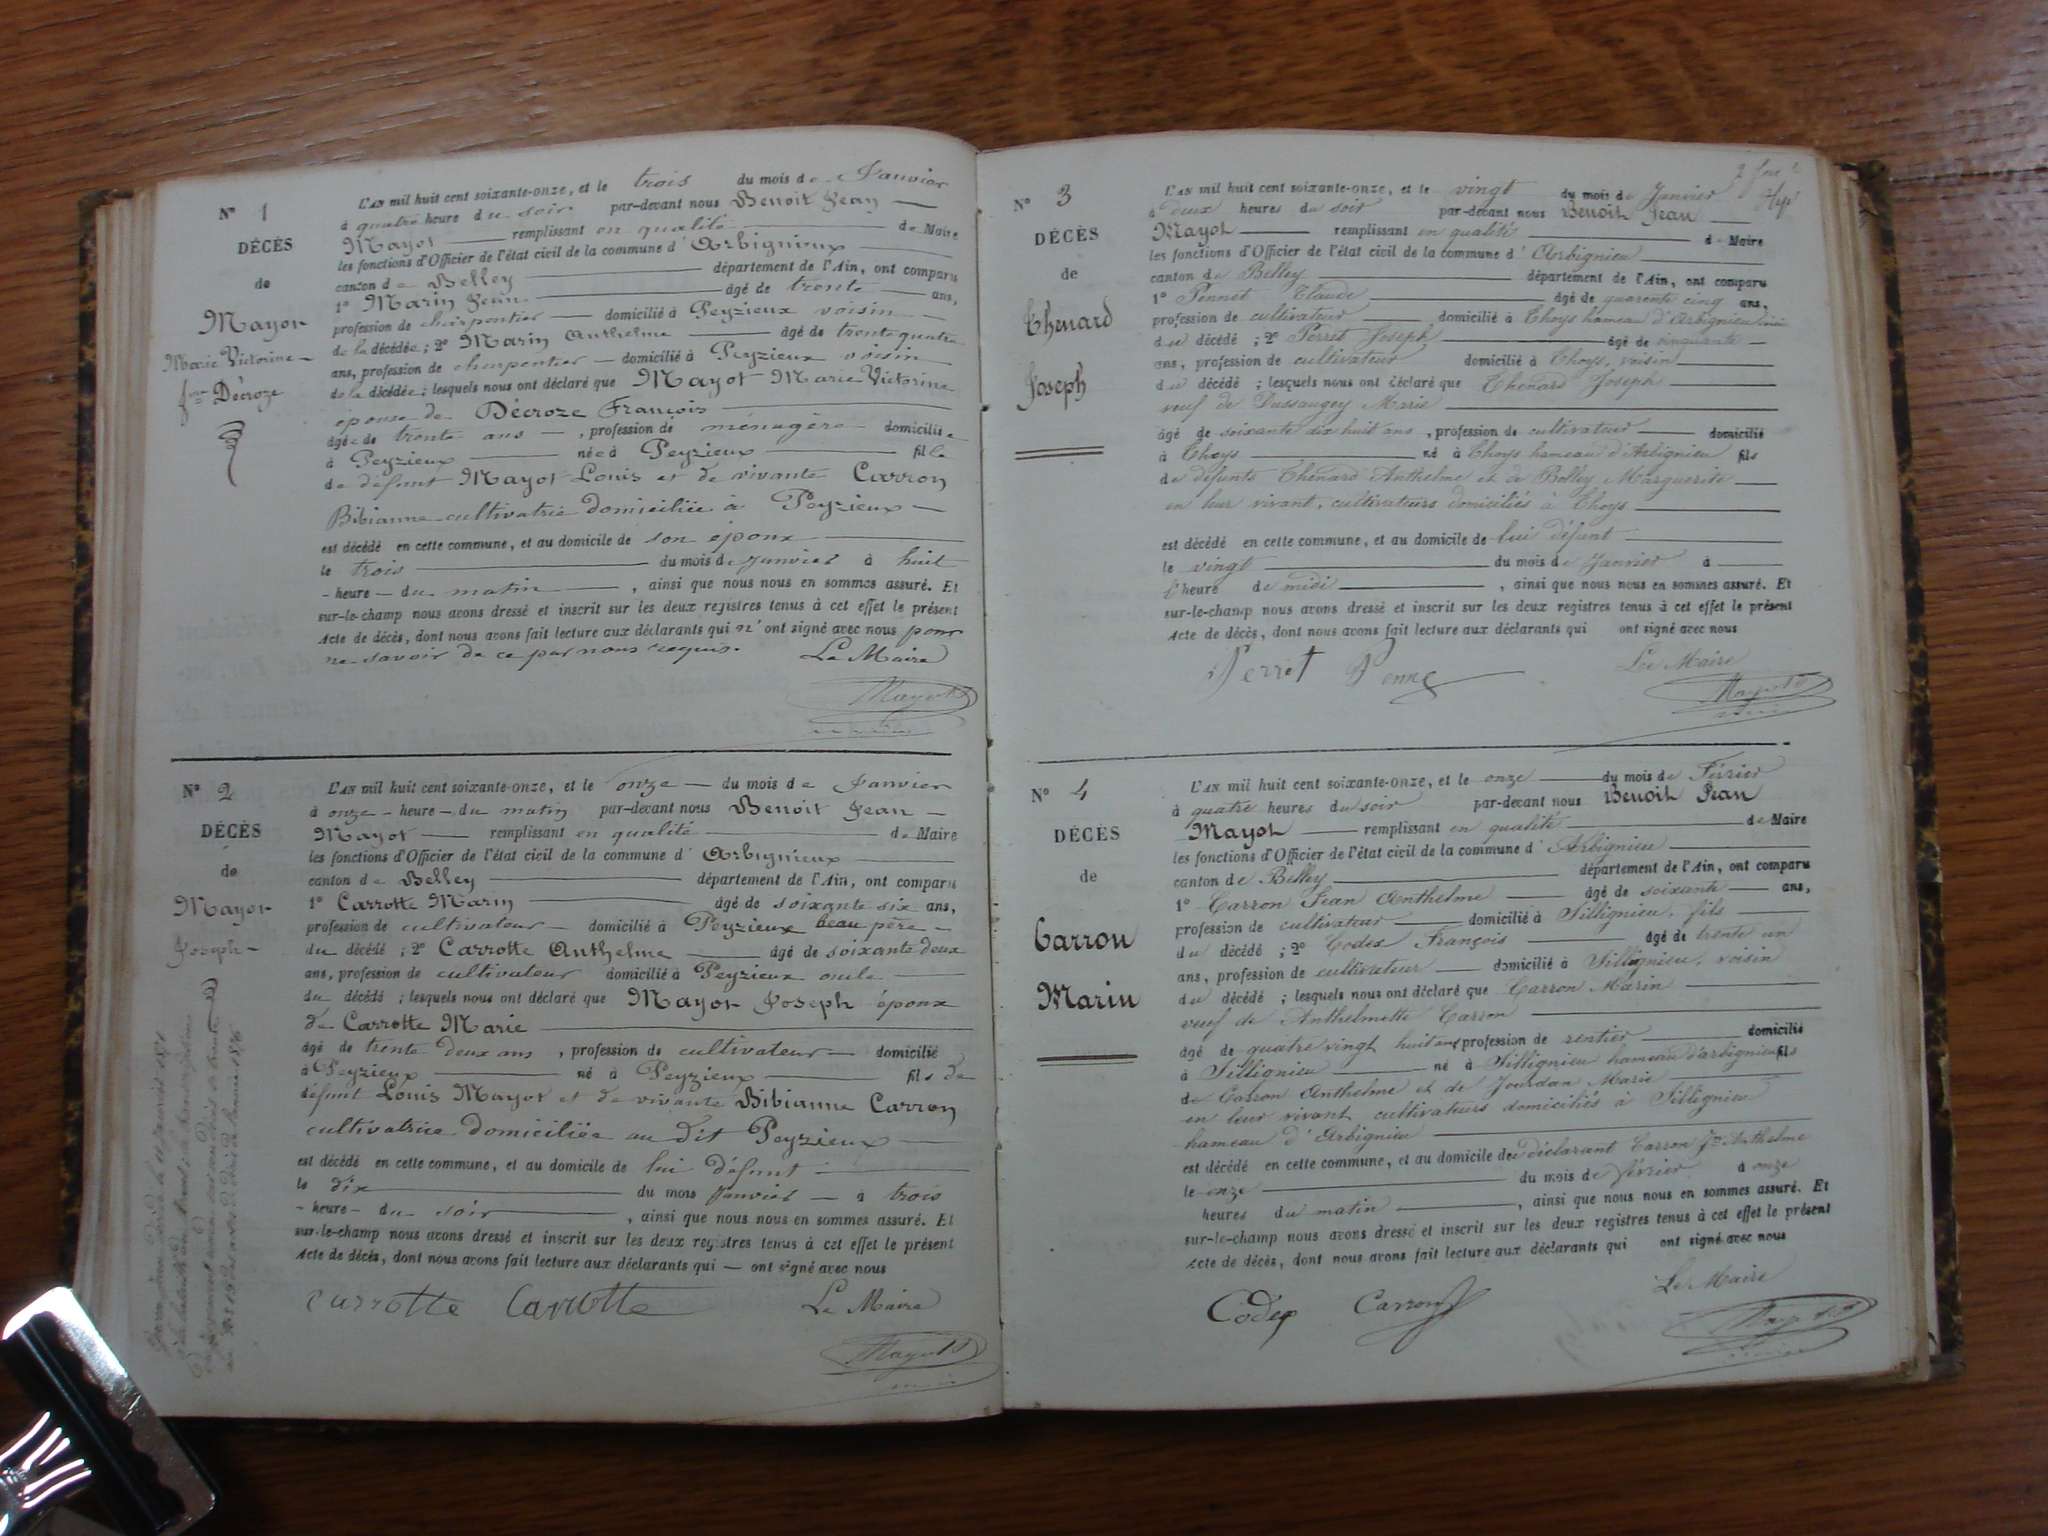 N° 1
DÉCÈS
de
Mayot
Marie Victorine
fme Décroze
L'AN mil huit cent soixante-onze, et le trois du mois de Janvier
à quatre heure du soir par-devant nous Benoit Jean
Mayot remplissant en qualité de Maire
les fonctions d'Officier de l'état civil de la commune d'Arbignieux
canton de Belley département de l'Ain, ont comparu
1° Marin Jean âgé de trente ans,
profession de charpentier domicilié à Peyzieux voisin
de la décédée ; 2° Marin Anthelme âgé de trente quatre
ans, profession de charpentier domicilié à Peyzieux voisin
de la décédée ; lesquels nous ont déclaré que Mayot Marie Victorine
épouse de Décroze François
âgée de trente ans, profession de ménagère domiciliée
à Peyzieux née à Peyzieux fille
de défunt Mayot Louis et de vivante Carron
Bibianne cultivatrie domiciliée à Peyzieux
est décédé en cette commune, et au domicile de son époux
le trois du mois de Janvier à huit
heure du matin, ainsi que nous nous en sommes assuré. Et
sur-le-champ nous avons dressé et inscrit sur les deux registres tenus à cet effet le présent
Acte de décès, dont nous avons fait lecture aux déclarants qui n'ont signé avec nous pour
ne savoir de ce par nous requis. Le Maire
Mayot
N° 2
DÉCÈS
de
Mayot
Joseph
L'AN mil huit cent soixante-onze, et le onze du mois de Janvier
à onze heure du matin par-devant nous Benoit Jean
Mayot remplissant en qualité de Maire
les fonctions d'Officier de l'état civil de la commune d'Arbignieux
canton de Belley département de l'Ain, ont comparu
1° Carrotte Marin âgé de soixante six ans,
profession de cultivateur domicilié à Peyzieux beau père
du décédé ; 2° Carrotte Anthelme âgé de soixante deux
ans, profession de cultivateur domicilié à Peyzieux oncle
du décédé ; lesquels nous ont déclaré que Mayot Joseph époux
de Carrotte Marie
âgé de trente deux ans, profession de cultivateur domicilié
à Peyzieux né à Peyzieux fils de
défunt Louis Mayot et de vivante Bibianne Carron
cultivatrice domiciliée au dit Peyzieux
est décédé en cette commune, et au domicile de lui défunt
le dix du mois Janvier à trois
heure du soir, ainsi que nous nous en sommes assuré. Et
sur-le-champ nous avons dressé et inscrit sur les deux registres tenus à cet effet le présent
Acte de décès, dont nous avons fait lecture aux déclarants qui ont signé avec nous
carrotte Carrotte Le Maire
Mayot
N° 3
DÉCÈS
de
Thenard
Joseph
L'AN mil huit cent soixante-onze, et le vingt du mois de Janvier
à deux heures du soir par-devant nous Benoit Jean
Mayot remplissant en qualité de Maire
les fonctions d'Officier de l'état civil de la commune d'Arbignieu
canton de Belley département de l'Ain, ont comparu
1° Pennet Claude âgé de quarente cinq ans,
profession de cultivateur domicilié à Thoys hameau d'Arbignieu
du décédé ; 2° Perret Joseph âgé de cinquante
ans, profession de cultivateur domicilié à Thoys, voisin
du décédé ; lesquels nous ont déclaré que Thenard Joseph
veuf de Dussaugey Marie
âgé de soixante dix huit ans, profession de cultivateur domicilié
à Thoys né à Thoys hameau d'Arbignieu fils
de défunts Thenard Anthelme et de Bolley Marguerite
en leur vivant, cultivateurs domiciliés à Thoys
est décédé en cette commune, et au domicile de lui défunt
le vingt du mois de Janvier à
l'heure de midi, ainsi que nous nous en sommes assuré. Et
sur-le-champ nous avons dressé et inscrit sur les deux registres tenus à cet effet le présent
Acte de décès, dont nous avons fait lecture aux déclarants qui ont signé avec nous
Perret Le Maire
Mayot
N° 4
DÉCÈS
de
Carron
Marin
L'AN mil huit cent soixante-onze, et le onze du mois de Février
à quatre heures du soir par-devant nous Benoit Jean
Mayot remplissant en qualité de Maire
les fonctions d'Officier de l'état civil de la commune d'Arbignieu
canton de Belley département de l'Ain, ont comparu
1° Carron Jean Anthelme âgé de soixante ans,
profession de cultivateur domicilié à Sillignieu, fils
du décédé ; 2° Codex François âgé de trente un
ans, profession de cultivateur domicilié à Sillignieu, voisin
du décédé ; lesquels nous ont déclaré que Carron Marin
veuf de Anthelmette Carron
âgé de quatre vingt huit ans profession de rentier domicilié
à Sillignieu né à Sillignieu hameau d'arbignieu fils
de Carron Anthelme et de Jourdan Marie
en leur vivant cultivateurs domiciliés à Sillignieu
hameau d'Arbignieu
est décédé en cette commune, et au domicile du déclarant Carron Jn Anthelme
le onze du mois de février à onze
heures du matin, ainsi que nous nous en sommes assuré. Et
sur-le-champ nous avons dressé et inscrit sur les deux registres tenus à cet effet le présent
Acte de décès, dont nous avons fait lecture aux déclarants qui ont signé avec nous
Codex Carron Le Maire